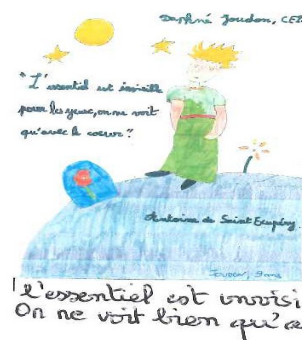 Daphné Joudon, CE2
"L'essentiel est invisible
pour les yeux, on ne voit
qu'avec le coeur".
Antoine de Saint Exupéry.
JOUDON, 9 ans
l'essentiel est invisi
On ne voit bien qu'a